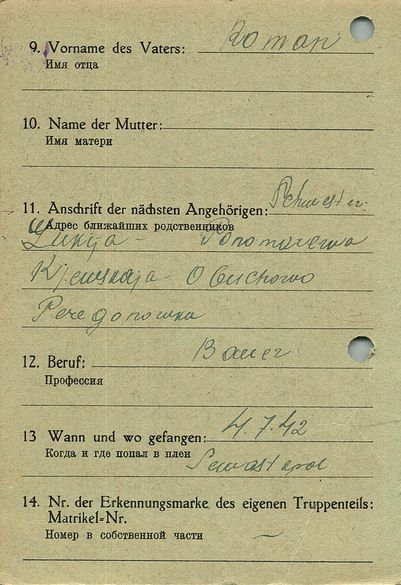 9. Vorname des Vaters: Roman
Имя отца
10. Name der Mutter:
Имя матери
11. Anschrift der nächsten Angehörigen: Schwester.
Адрес ближайших родственников
Ponomarewa
Kijewskaja - Obuchowo
12. Beruf: Bauer
Профессия
13 Wann und wo gefangen: 4.7.42
Когда и где попал в плен Sewastopol
14. Nr. der Erkennungsmarke des eigenen Truppenteils:
Matrikel-Nr.
Номер в собственной части —